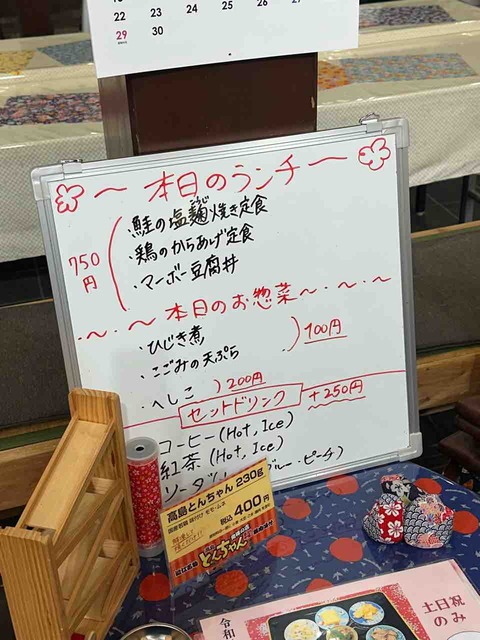 22 23 24 25 26 27
29 30
～本日のランチ～
750円
・鮭の塩麹焼き定食
こうじ
・鶏のからあげ定食
・マーボー豆腐丼
・～・～本日のお惣菜～・～・～
・ひじき煮
・こごみの天ぷら
100円
・へしこ 200円
セットドリンク +250円
コーヒー(Hot, Ice)
紅茶(Hot, Ice)
ブルー・ピーチ)
高島とんちゃん 230g
税込 400円
とんちゃん
令和
土日祝
のみ